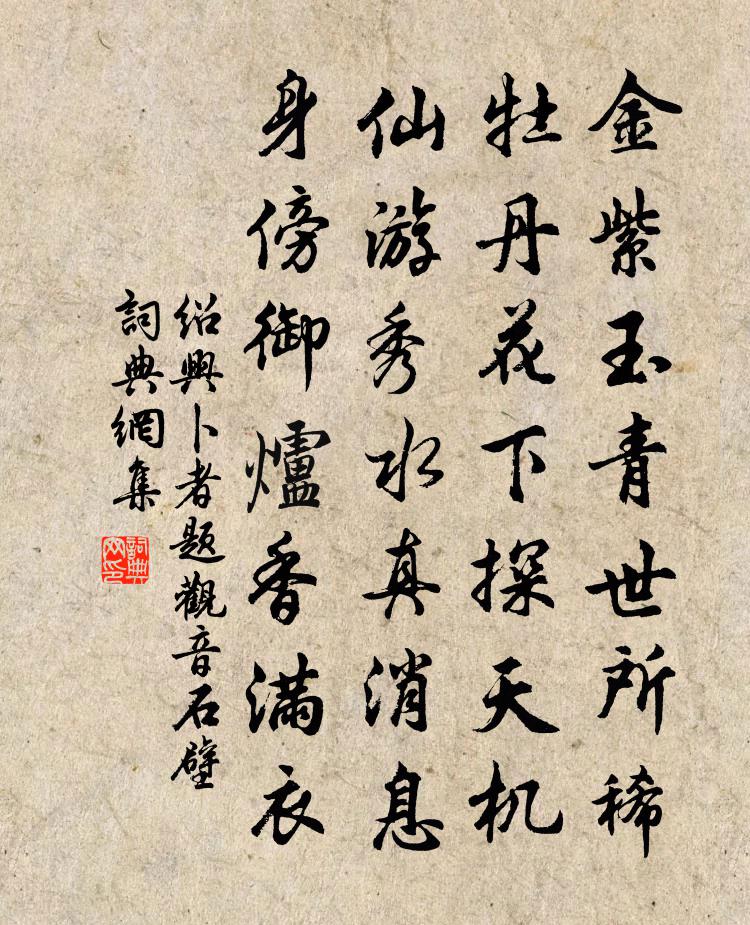 金紫玉青世所稀
牡丹花下探天机
仙游秀水真消息
身傍御爐香满衣
绍興卜者题觀音石壁
詞典網集
詞典
网印